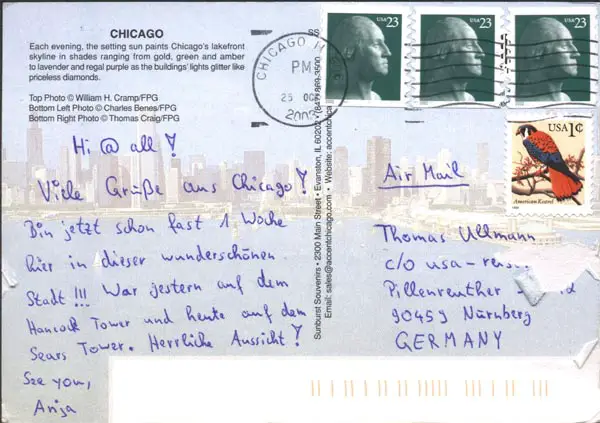 CHICAGO
Each evening, the setting sun paints Chicago's lakefront
skyline in shades ranging from gold, green and amber
to lavender and regal purple as the buildings' lights glitter like
priceless diamonds.
Top Photo © William H. Cramp/FPG
Bottom Left Photo © Charles Benes/FPG
Bottom Right Photo © Thomas Craig/FPG
Hi @ all!
Viele Grüße aus Chicago!
Bin jetzt schon fast 1 Woche
hier in dieser wunderschönen
Stadt!!! War jestern auf dem
Hancock Tower und heute auf dem
Sears Tower. Herrliche Aussicht!
See you,
Anja
Sunburst Souvenirs • 2300 Main Street • Evanston, IL 60202 • (847) 869-3500
Email: sales@accentchicago.com • Website: accentchicago
CHICAGO
PM
25 OC
2003
USA 23
USA 23
USA 23
USA 1¢
American Kestrel
Air Mail
Thomas Ullmann
c/o usa-reise
Pillenreuther
90459 Nürnberg
GERMANY